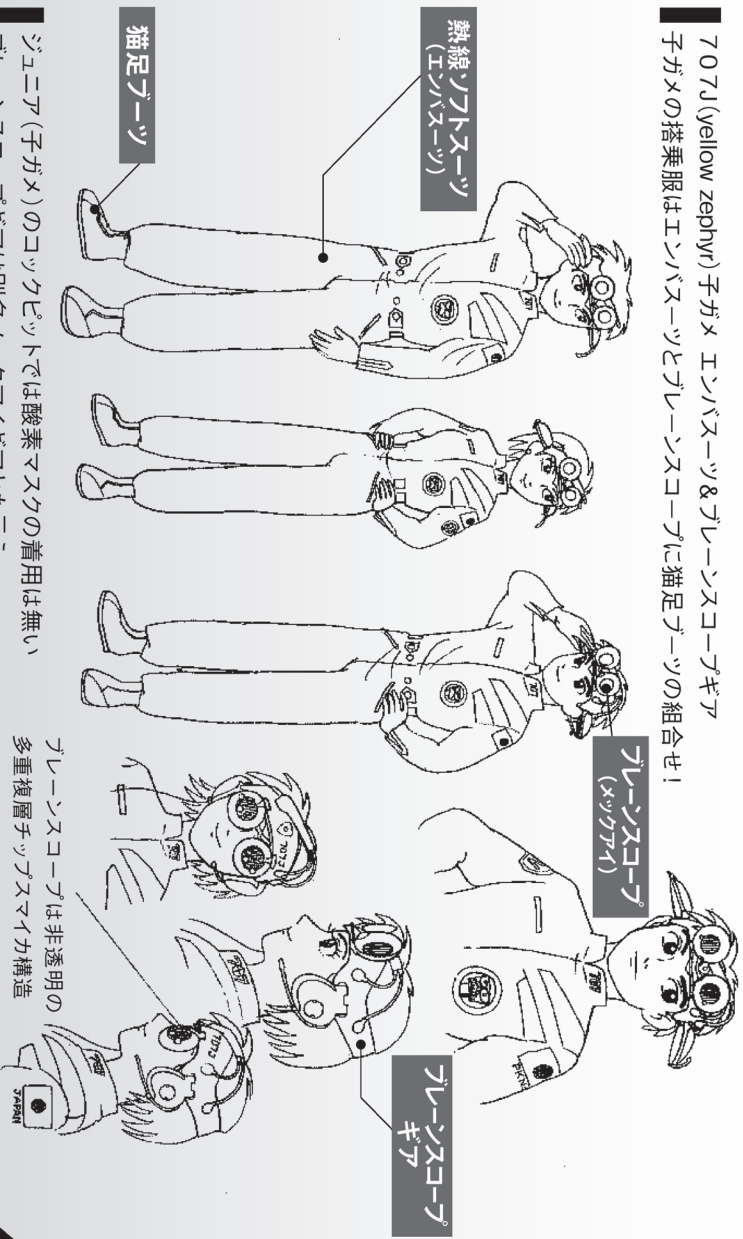 707J(yellow zephyr)子ガメ エンバスーツ&ブレーンスコープギア
子ガメの搭乗服はエンバスーツとブレーンスコープに猫足ブーツの組合せ!
熱線ソフトスーツ
(エンバスーツ)
猫足ブーツ
ブレーンスコープ
(メックアイ)
ブレーンスコープ
ギア
ブレーンスコープは非透明の
多重複層チップスマイカ構造
ジュニア(子ガメ)のコックピットでは酸素マスクの着用は無い
707J
707J
JAPAN